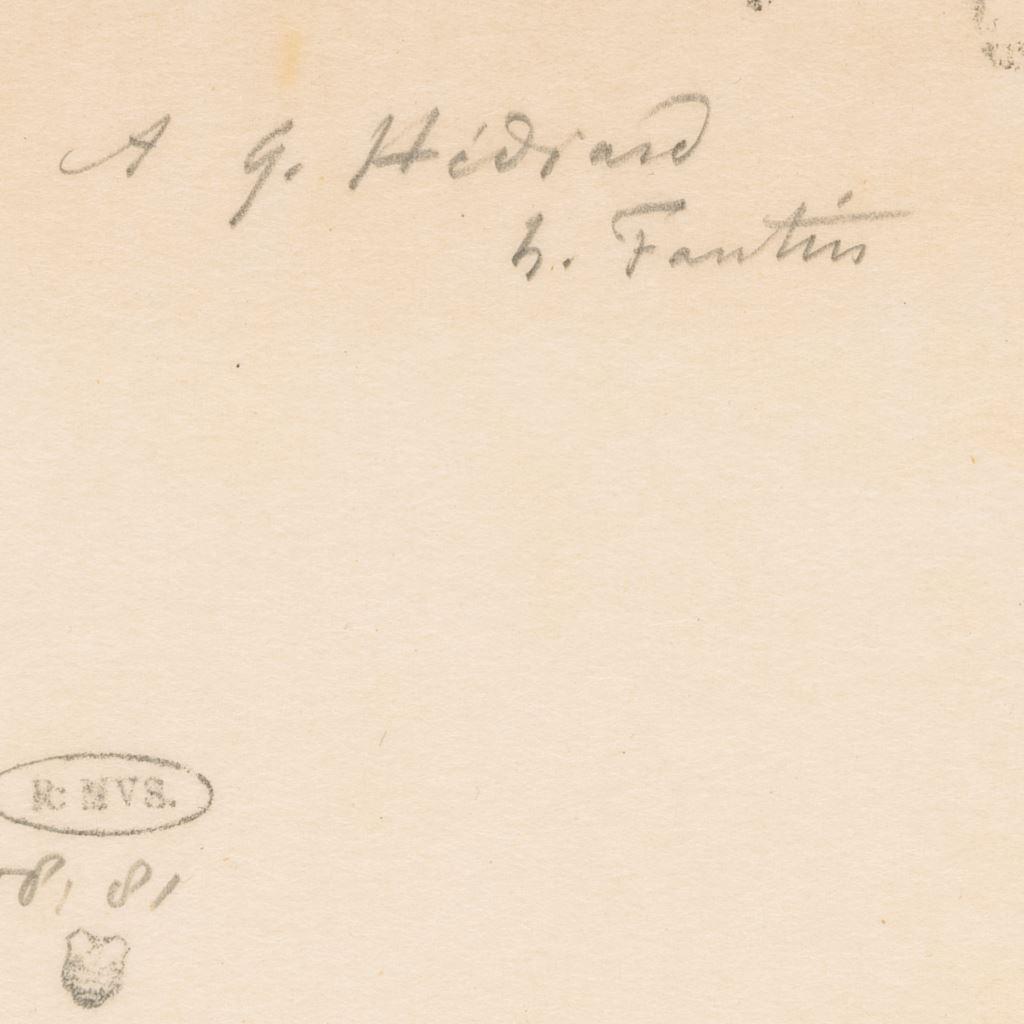 A G. Hédiard
h. Fantin
R: MVS.
8, 81